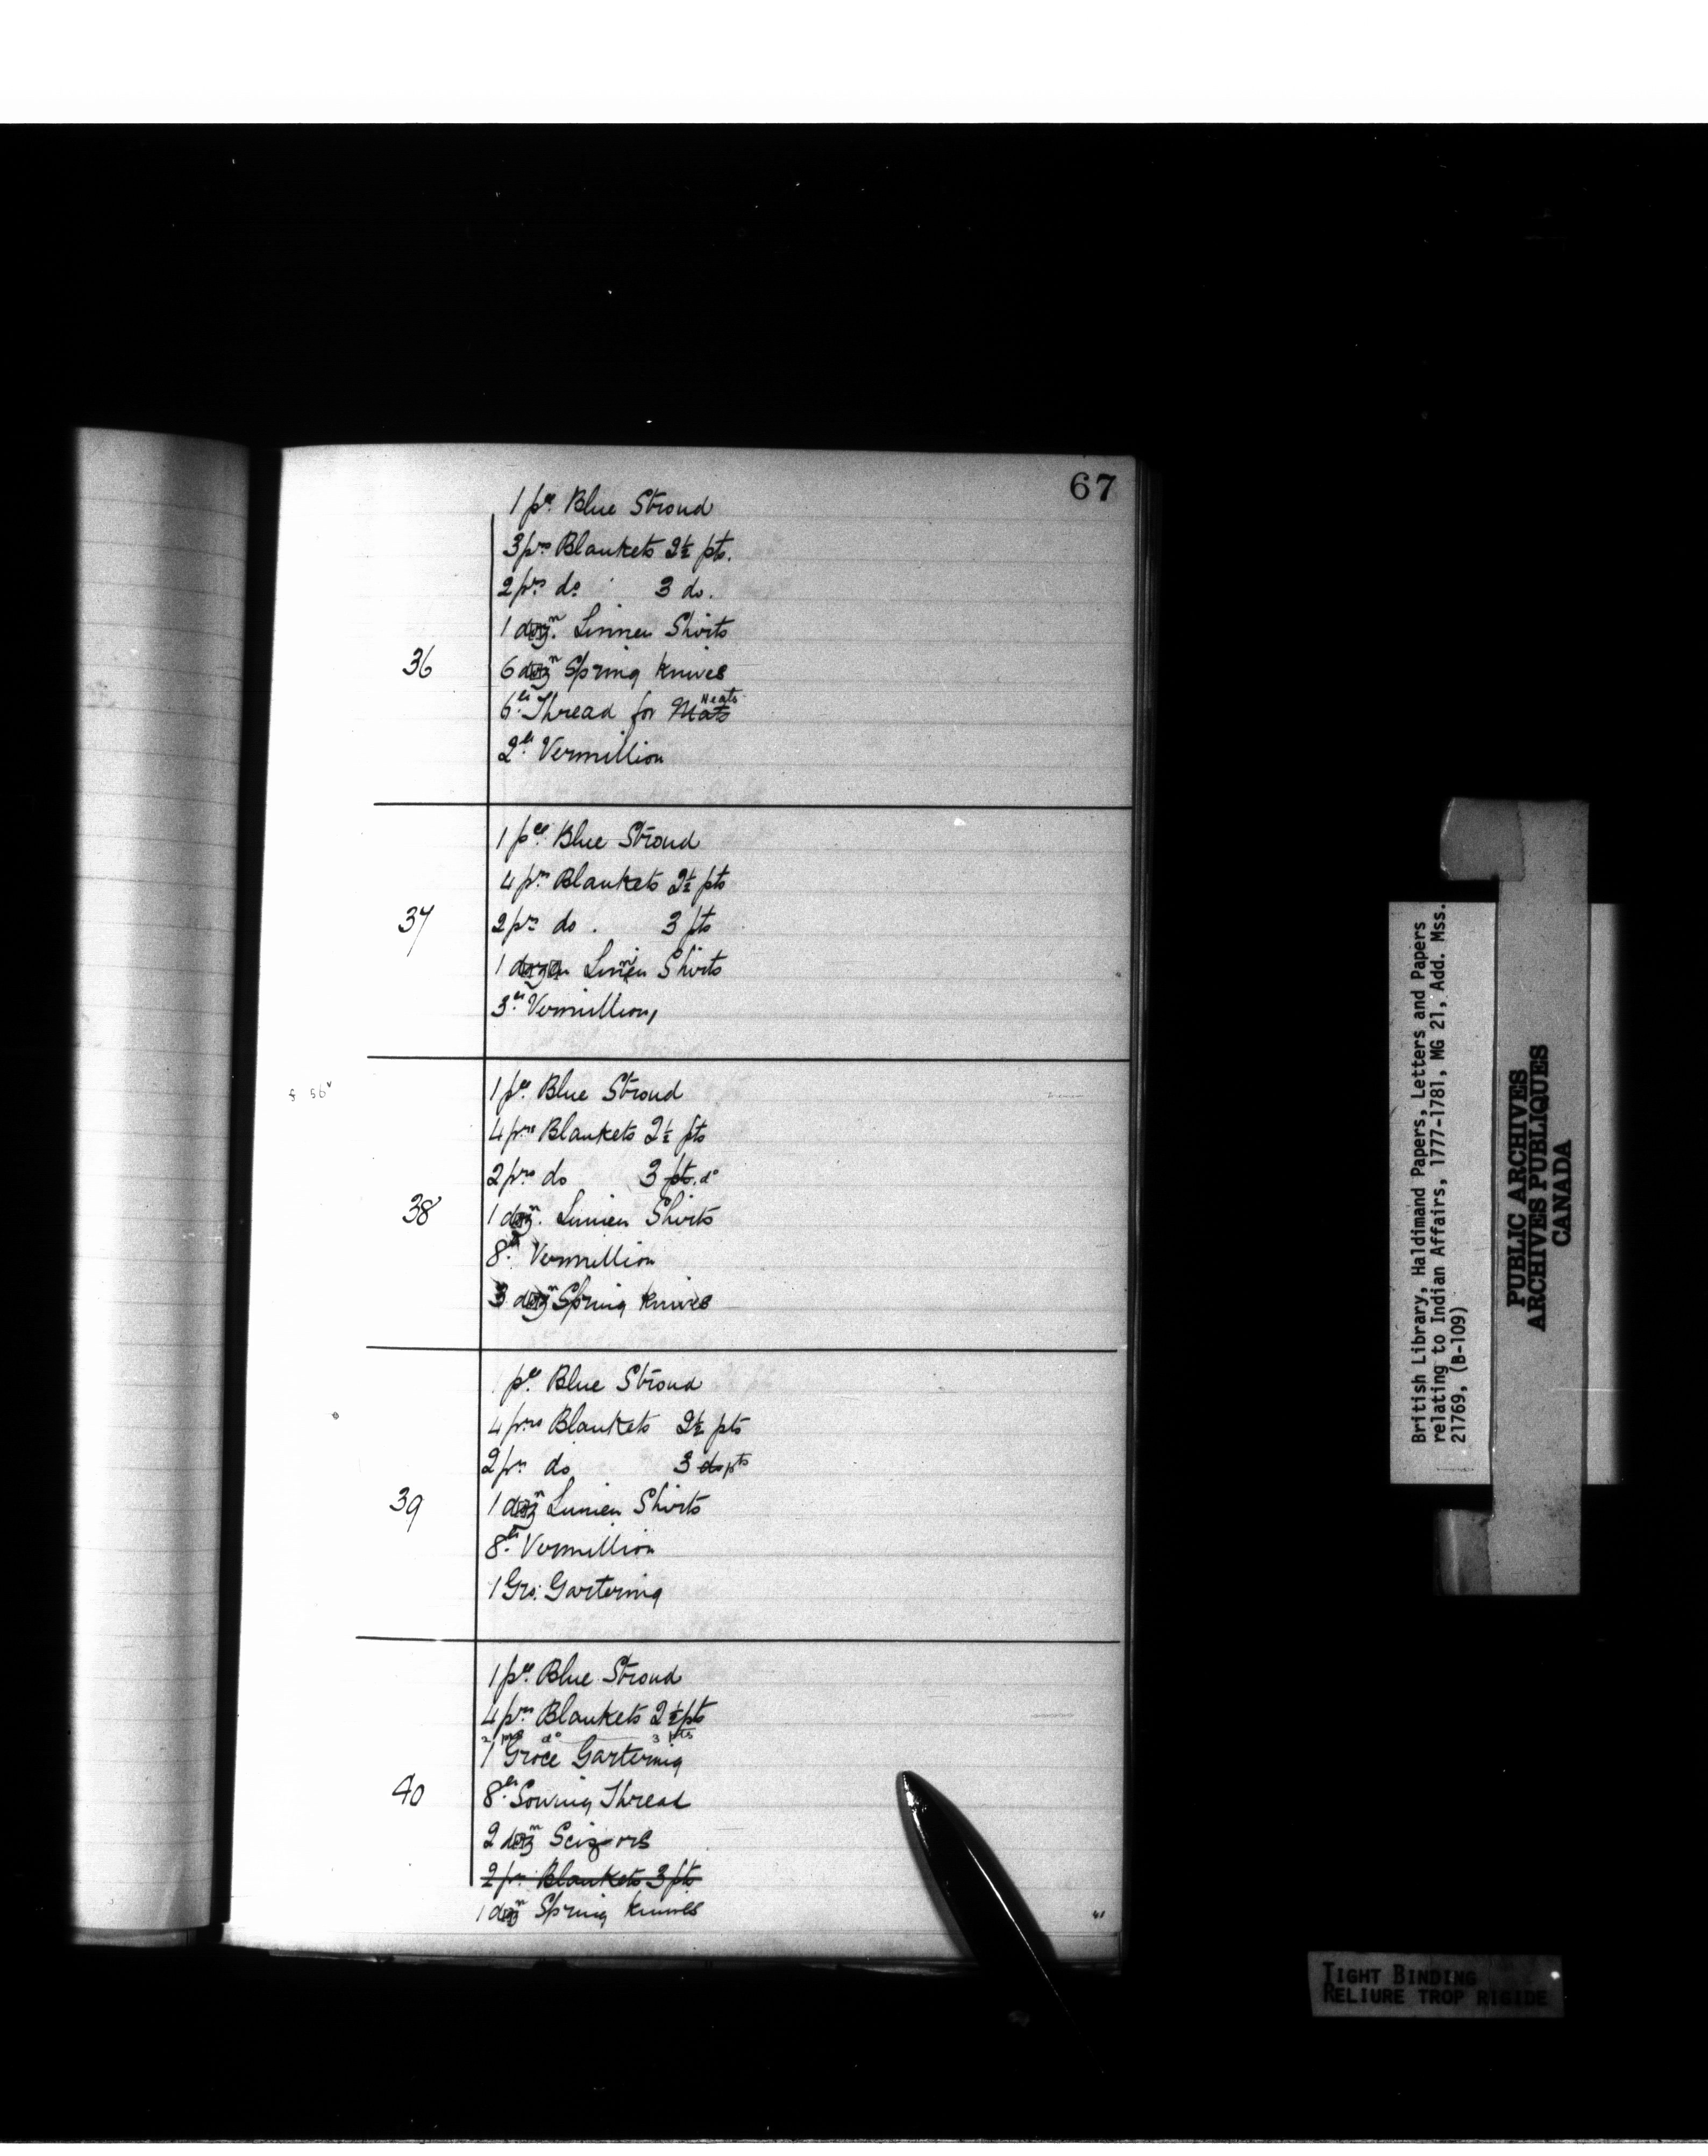 67
1 pce. Blue Stroud
3 prs Blankets 2½ pts.
2 prs do 3 do.
36
1 dozn. Linnen Shirts
6 dozn Spring Knives
6 lb. Thread for Mats Neats
2 lb. Vermillion
1 pce. Blue Stroud
4 prs Blankets 2½ pts
37
2 prs do. 3 pts
1 dozen Linnen Shirts
3 lb. Vermillion,
1 pce. Blue Stroud
4 prs Blankets 2½ pts
2 prs do 3 pts. do
38
1 dozn. Linnen Shirts
8 lb. Vermillion
3 dozn Spring Knives
1 pce. Blue Stroud
4 prs Blankets 2½ pts
2 prs do 3 do pts
39
1 dozn Linnen Shirts
8 lb. Vermillion
1 Gro. Gartering
1 pce. Blue Stroud
4 prs Blankets 2½ pts
2 prs do 3 pts
1 Groce Gartering
40
8 lb. Sowing Thread
2 dozn Scizors
2 prs Blankets 3 pts
1 dozn Spring Knives
British Library, Haldimand Papers, Letters and Papers
relating to Indian Affairs, 1777-1781, MG 21, Add. Mss.
21769, (B-109)
PUBLIC ARCHIVES
ARCHIVES PUBLIQUES
CANADA
TIGHT BINDING
RELIURE TROP RIGIDE